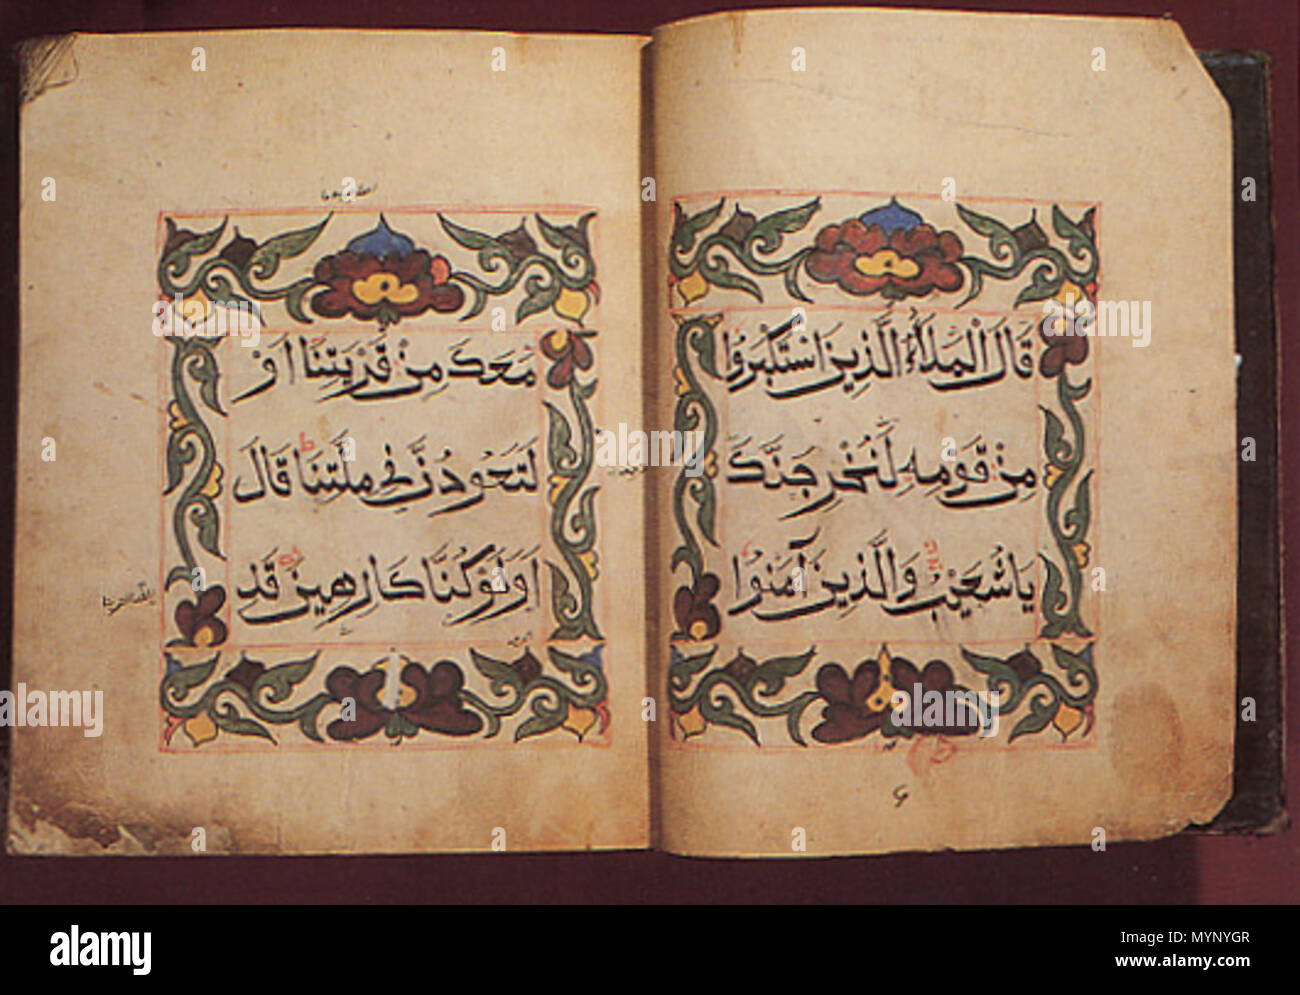 قَالَ الْمَلَأُ الَّذِينَ اسْتَكْبَرُوا
مِنْ قَوْمِهِ لَنُخْرِجَنَّكَ
يَا شُعَيْبُ وَالَّذِينَ آمَنُوا
مَعَكَ مِنْ قَرْيَتِنَا أَوْ
لَتَعُودُنَّ فِي مِلَّتِنَا قَالَ
أَوَلَوْ كُنَّا كَارِهِينَ قَدِ
a alamy stock photo
alamy
Image ID: MYNYGR
www.alamy.com